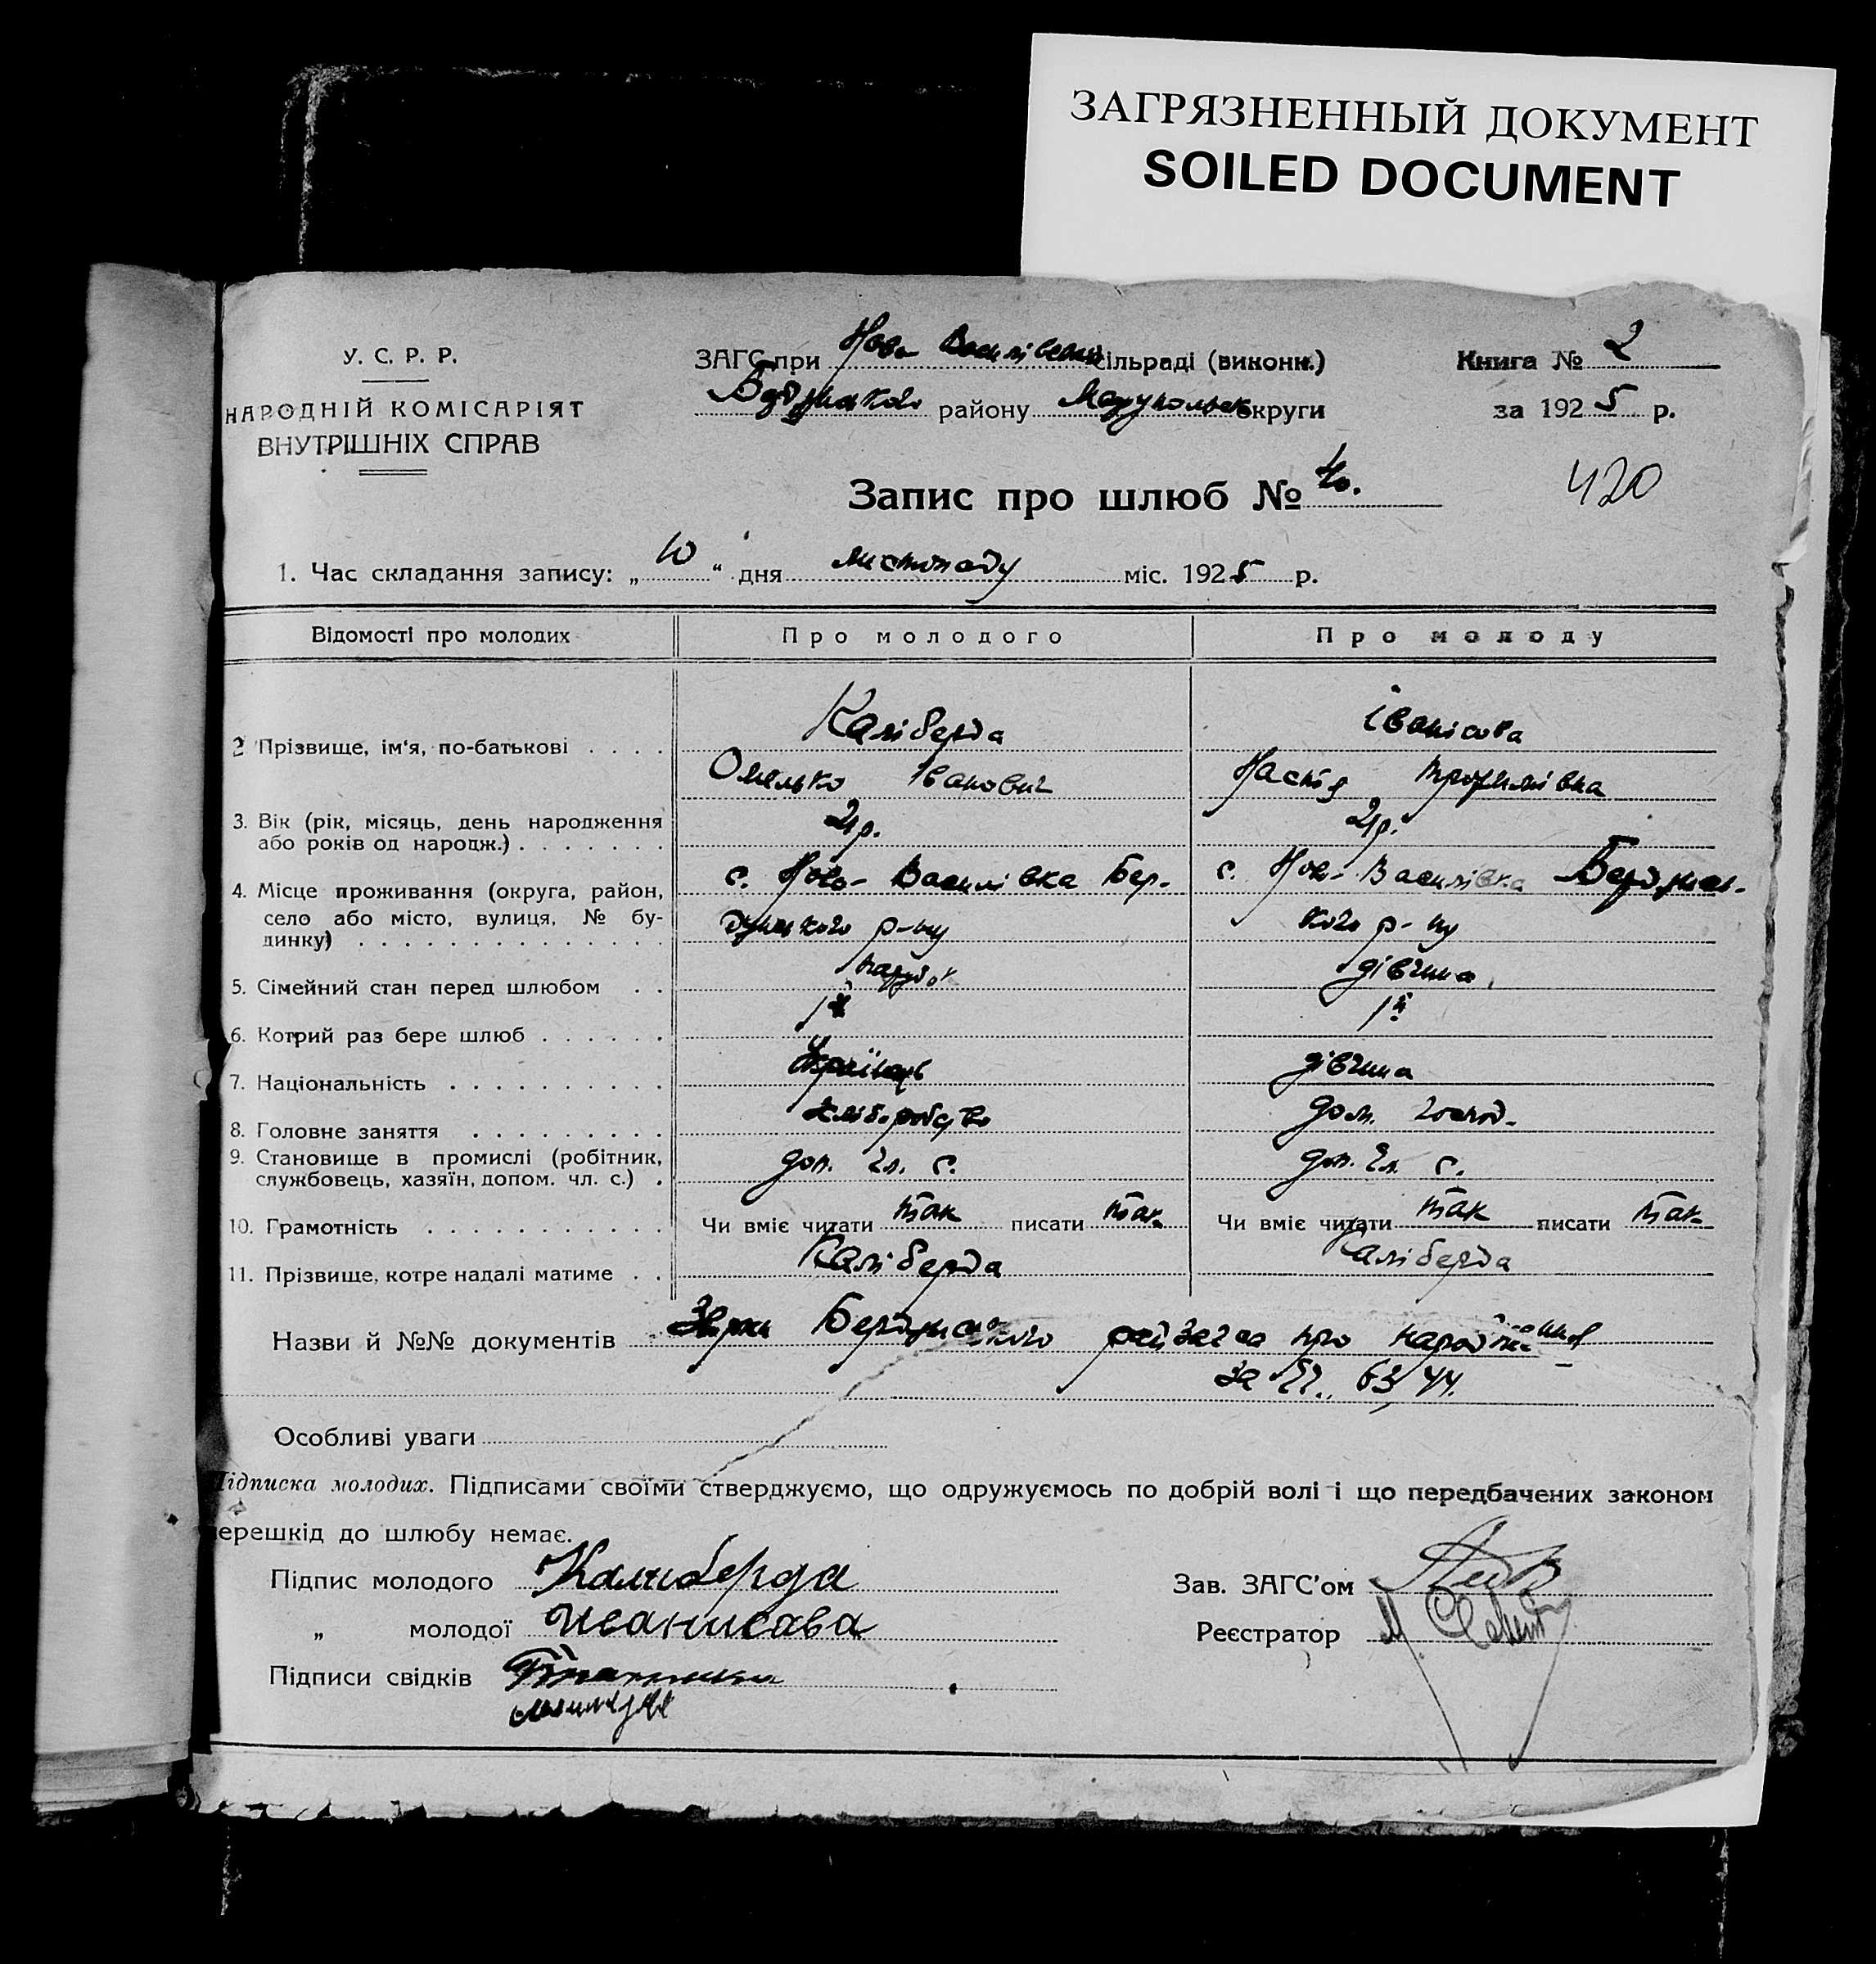 ЗАГРЯЗНЕННЫЙ ДОКУМЕНТ
SOILED DOCUMENT
У. С. Р. Р.
НАРОДНІЙ КОМІСАРІЯТ
ВНУТРІШНІХ СПРАВ
ЗАГС при Ново Василівській сільраді (виконк.)
Бердянсково району Маріупольськ округи
Книга № 2
за 1925 р.
Запис про шлюб № 40.
420
1. Час складання запису: „10“ дня листопаду міс. 1925 р.
Відомості про молодих Про молодого Про молоду
2 Прізвище, ім'я, по-батькові Каліберда Іванісова
Омелько Іванович Настя Трохимівна
3. Вік (рік, місяць, день народження 21р. 21р.
або років од народж.)
4. Місце проживання (округа, район, с. Ново-Василівка Бер- с. Ново-Василівка Бердянсь-
село або місто, вулиця, № бу- дянського р-ну кого р-ну
динку)
5. Сімейний стан перед шлюбом парубок дівчина
6. Котрий раз бере шлюб 1й 1й
7. Національність Українець дівчина
8. Головне заняття хліборобство дом. господ.
9. Становище в промислі (робітник, доп. чл. с. доп. чл. с.
службовець, хазяїн, допом. чл. с.)
10. Грамотність Чи вміє читати так писати так Чи вміє читати так писати так
11. Прізвище, котре надалі матиме Каліберда Каліберда
Назви й №№ документів Бердянського райзагса про народження
за 63/44.
Особливі уваги
Підписка молодих. Підписами своїми стверджуємо, що одружуємось по добрій волі і що передбачених законом
перешкід до шлюбу немає.
Підпис молодого Калиберда
„ молодої Иванисава
Підписи свідків
Зав. ЗАГС'ом
Реєстратор